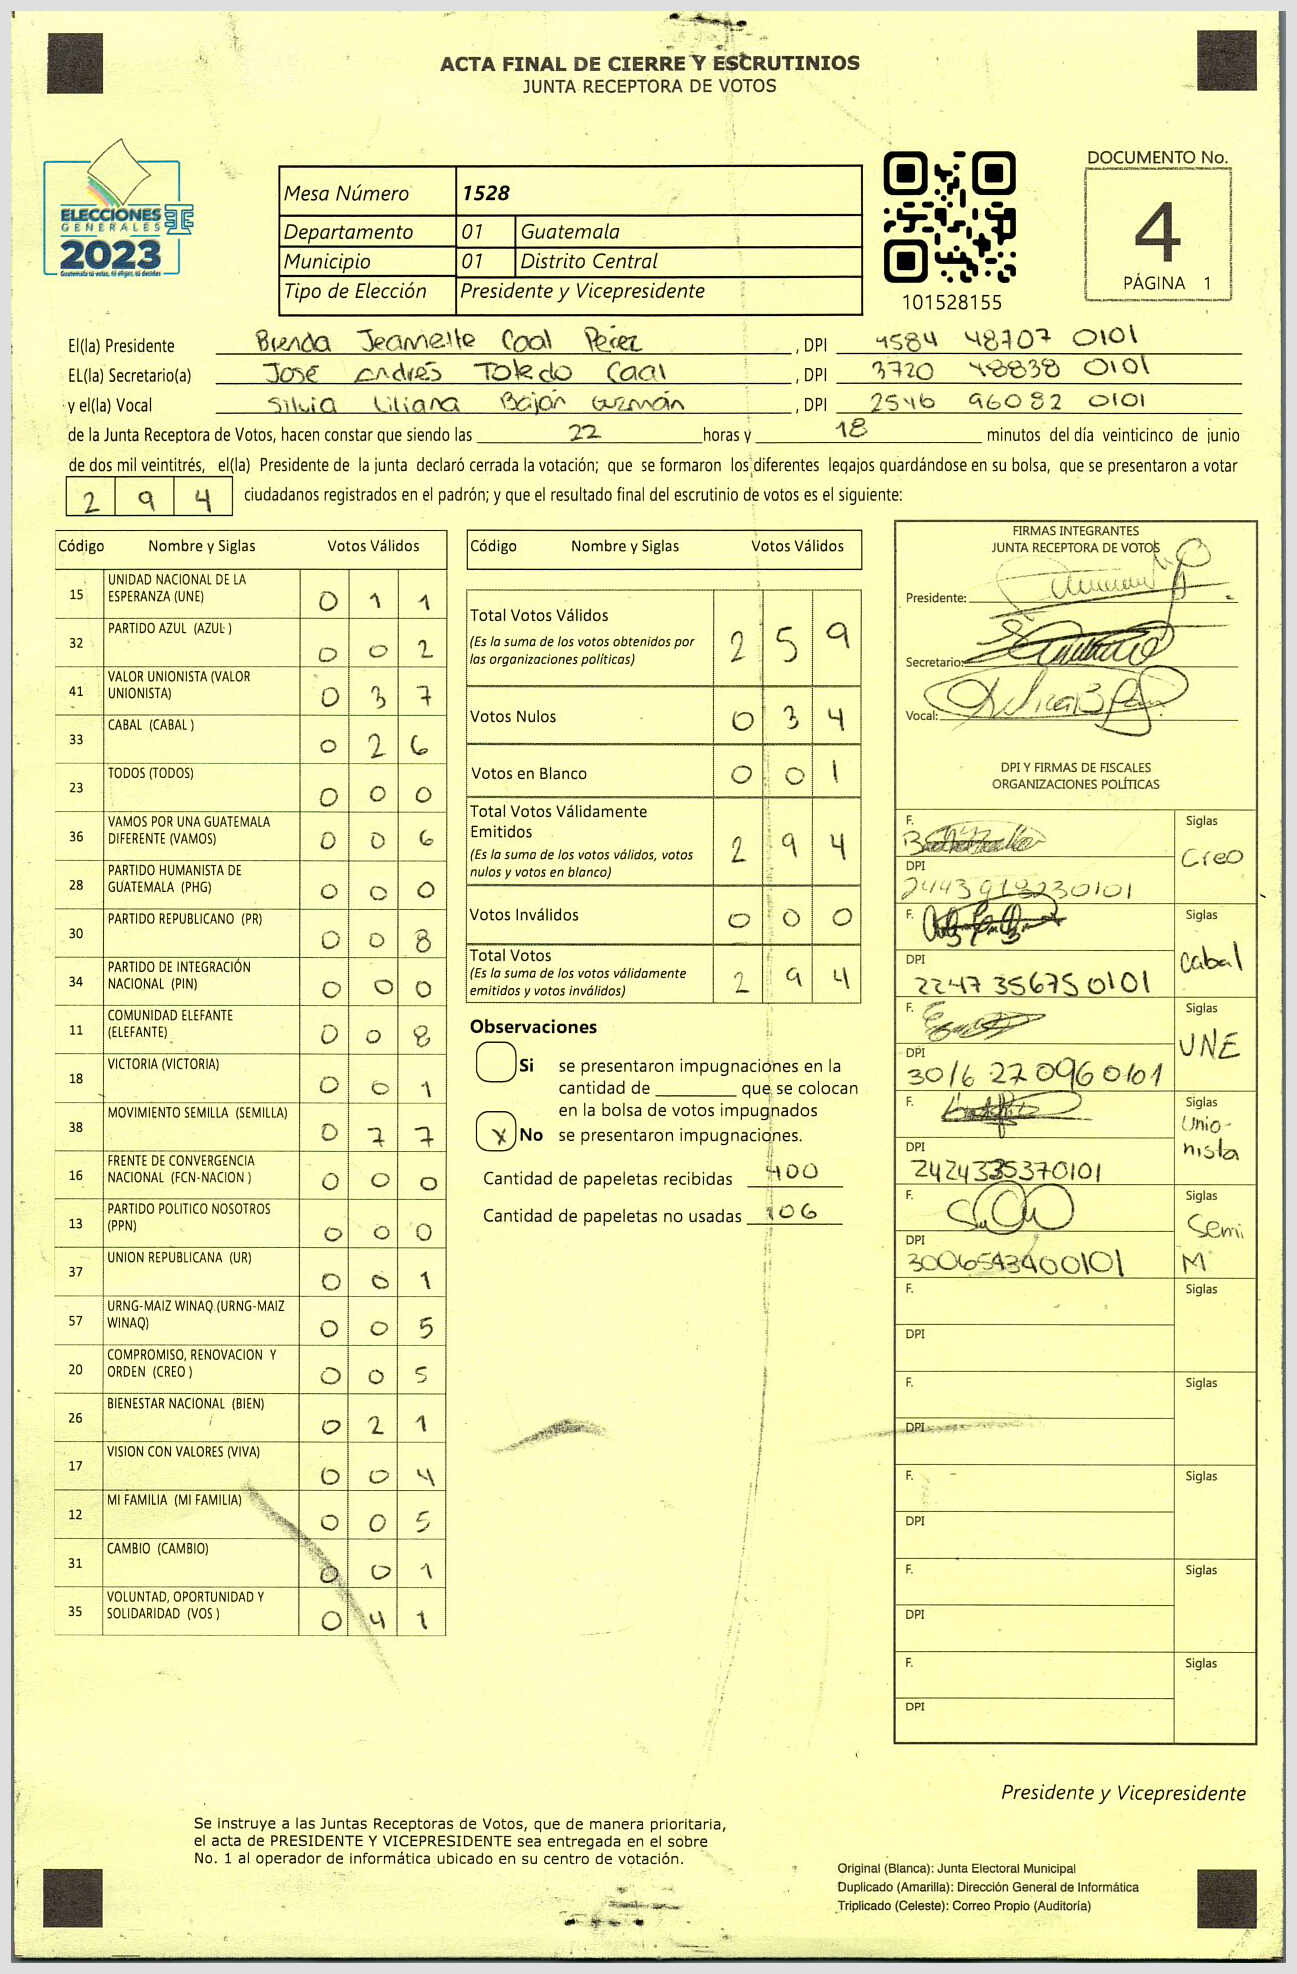 ACTA FINAL DE CIERRE Y ESCRUTINIOS
JUNTA RECEPTORA DE VOTOS
ELECCIONES
GENERALES
2023
Guatemala tú votas, tú eliges, tú decides
Mesa Número 1528
Departamento 01 Guatemala
Municipio 01 Distrito Central
Tipo de Elección Presidente y Vicepresidente
101528155
DOCUMENTO No.
4
PÁGINA 1
El(la) Presidente Brenda Jeamette Caal Pérez , DPI 4584 48707 0101
EL(la) Secretario(a) José Andrés Toledo Caal , DPI 3720 48838 0101
y el(la) Vocal Silvia Liliana Baján Guzmán , DPI 2546 96082 0101
de la Junta Receptora de Votos, hacen constar que siendo las 22 horas y 18 minutos del día veinticinco de junio
de dos mil veintitrés, el(la) Presidente de la junta declaró cerrada la votación; que se formaron los diferentes legajos guardándose en su bolsa, que se presentaron a votar
2 9 4 ciudadanos registrados en el padrón; y que el resultado final del escrutinio de votos es el siguiente:
Código Nombre y Siglas Votos Válidos
15 UNIDAD NACIONAL DE LA
ESPERANZA (UNE) 0 1 1
32 PARTIDO AZUL (AZUL ) 0 0 2
41 VALOR UNIONISTA (VALOR
UNIONISTA) 0 3 7
33 CABAL (CABAL ) 0 2 6
23 TODOS (TODOS) 0 0 0
36 VAMOS POR UNA GUATEMALA
DIFERENTE (VAMOS) 0 0 6
28 PARTIDO HUMANISTA DE
GUATEMALA (PHG) 0 0 0
30 PARTIDO REPUBLICANO (PR) 0 0 8
34 PARTIDO DE INTEGRACIÓN
NACIONAL (PIN) 0 0 0
11 COMUNIDAD ELEFANTE
(ELEFANTE) 0 0 8
18 VICTORIA (VICTORIA) 0 0 1
38 MOVIMIENTO SEMILLA (SEMILLA) 0 7 7
16 FRENTE DE CONVERGENCIA
NACIONAL (FCN-NACION ) 0 0 0
13 PARTIDO POLITICO NOSOTROS
(PPN) 0 0 0
37 UNION REPUBLICANA (UR) 0 0 1
57 URNG-MAIZ WINAQ (URNG-MAIZ
WINAQ) 0 0 5
20 COMPROMISO, RENOVACION Y
ORDEN (CREO ) 0 0 5
26 BIENESTAR NACIONAL (BIEN) 0 2 1
17 VISION CON VALORES (VIVA) 0 0 4
12 MI FAMILIA (MI FAMILIA) 0 0 5
31 CAMBIO (CAMBIO) 0 0 1
35 VOLUNTAD, OPORTUNIDAD Y
SOLIDARIDAD (VOS ) 0 4 1
Código Nombre y Siglas Votos Válidos
Total Votos Válidos
(Es la suma de los votos obtenidos por
las organizaciones políticas) 2 5 9
Votos Nulos 0 3 4
Votos en Blanco 0 0 1
Total Votos Válidamente
Emitidos
(Es la suma de los votos válidos, votos
nulos y votos en blanco) 2 9 4
Votos Inválidos 0 0 0
Total Votos
(Es la suma de los votos válidamente
emitidos y votos inválidos) 2 9 4
Observaciones
Si se presentaron impugnaciones en la
cantidad de ________ que se colocan
en la bolsa de votos impugnados
X No se presentaron impugnaciones.
Cantidad de papeletas recibidas 400
Cantidad de papeletas no usadas 106
FIRMAS INTEGRANTES
JUNTA RECEPTORA DE VOTOS
Presidente:
Secretario:
Vocal:
DPI Y FIRMAS DE FISCALES
ORGANIZACIONES POLÍTICAS
F. Siglas
Creo
DPI
F. Siglas
cabal
DPI
2247 35675 0101
F. Siglas
UNE
DPI
3016 27096 0101
F. Siglas
Unio-
nista
DPI
2424335370101
F. Siglas
Semi
DPI
3006593400101 M
F. Siglas
DPI
F. Siglas
DPI
F. Siglas
DPI
F. Siglas
DPI
F. Siglas
DPI
Presidente y Vicepresidente
Se instruye a las Juntas Receptoras de Votos, que de manera prioritaria,
el acta de PRESIDENTE Y VICEPRESIDENTE sea entregada en el sobre
No. 1 al operador de informática ubicado en su centro de votación.
Original (Blanca): Junta Electoral Municipal
Duplicado (Amarilla): Dirección General de Informática
Triplicado (Celeste): Correo Propio (Auditoría)